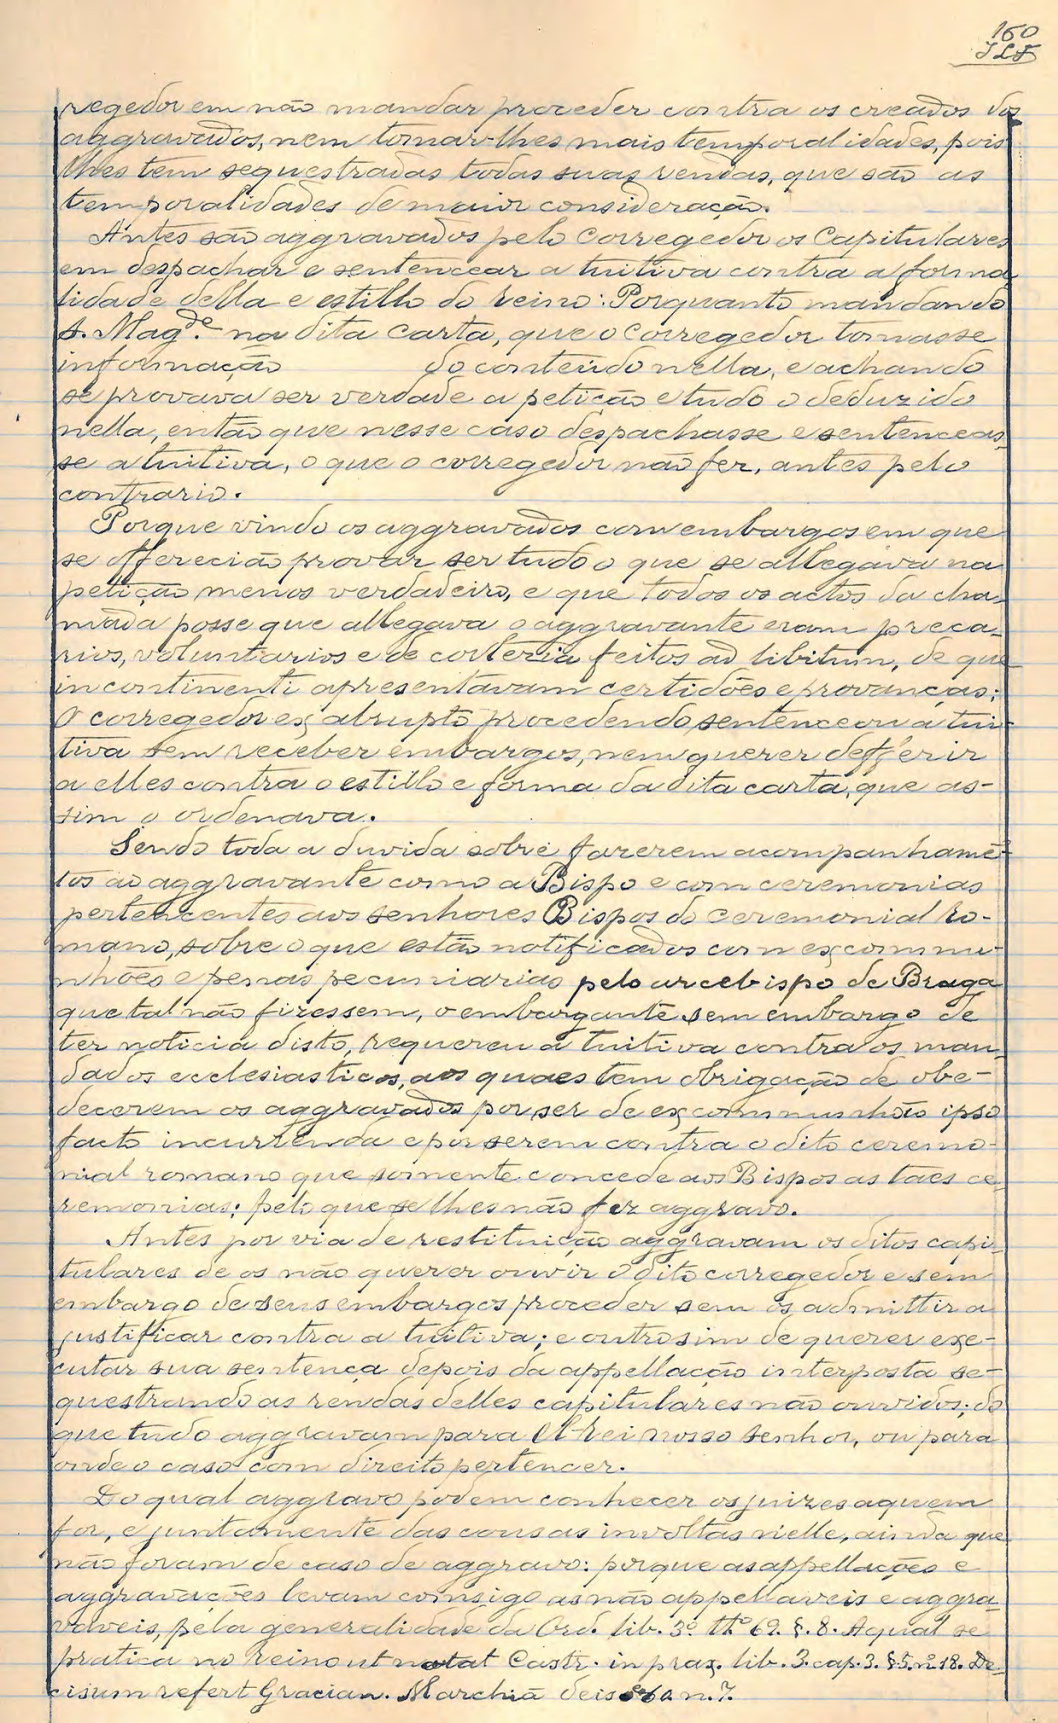 160
regedor em não mandar proceder contra os creados dos
aggravados, nem tomar-lhes mais temporalidades, pois
lhes tem sequestradas todas suas rendas, que são as
temporalidades de maior consideração.
Antes são aggravados pelo Corregedor os Capitulares
em despachar e sentencear a tuitiva contra a forma
lidade della e estillo do reino: Porquanto mandando
S. Magde. na dita carta, que o Corregedor tomasse
informação do conteúdo nella, e achando
se provava ser verdade a petição e tudo o deduzido
nella, então que nesse caso despachasse e sentenceas-
se a tuitiva, o que o corregedor não fez, antes pelo
contrario.
Porque vindo os aggravados com embargos em que
se offerecião provar ser tudo o que se allegava na
petição menos verdadeiro, e que todos os actos da cha-
mada posse que allegava o aggravante eram preca-
rios, voluntarios e de cortezia feitos ad libitum, de que
incontinenti apresentavam certidões e provanças;
O corregedor ex abrupto procedendo sentenceou a tui-
tiva sem receber embargos, nem querer defferir
a elles contra o estillo e forma da dita carta, que as-
sim o ordenava.
Sendo toda a duvida sobre fazerem acompanhamē-
tos ao aggravante como a Bispo e com ceremonias
pertencentes aos senhores Bispos do ceremonial Ro-
mano, sobre o que estão notificados com excommu-
nhões e penas pecuniarias pelo arcebispo de Braga
que tal não fizessem, o embargante sem embargo de
ter noticia disto, requereu a tuitiva contra os man-
dados ecclesiasticos, aos quaes tem obrigação de obe-
decerem os aggravados por ser de excommunhão ipso
facto incurrenda e por serem contra o dito ceremo-
nial romano que somente concede aos Bispos as taes ce-
remonias; pelo que se lhes não fez aggravo.
Antes por via de restituição aggravam os ditos capi-
tulares de os não querer ouvir o dito corregedor e sem
embargo de seus embargos proceder sem os admittir a
justificar contra a tuitiva; e outrosim de querer exe-
cutar sua sentença depois da appellação interposta se-
questrando as rendas delles capitulares não ouvidos; do
que tudo aggravam para El-rei nosso senhor, ou para
onde o caso com direito pertencer.
Do qual aggravo podem conhecer os juizes a quem
for, e juntamente das cousas involtas nelle, ainda que
não foram de caso de aggravo: porque as appellações e
aggravações levam comsigo as não appellaveis e aggra-
vaveis, pela generalidade da Ord. lib. 3º ttº 69. §. 8. A qual se
pratica no reino ut notat Castr. in prax. lib. 3. cap. 3. §. 5. nº 18. De-
cisum refert Gracian. Marchiā deis n. 7.